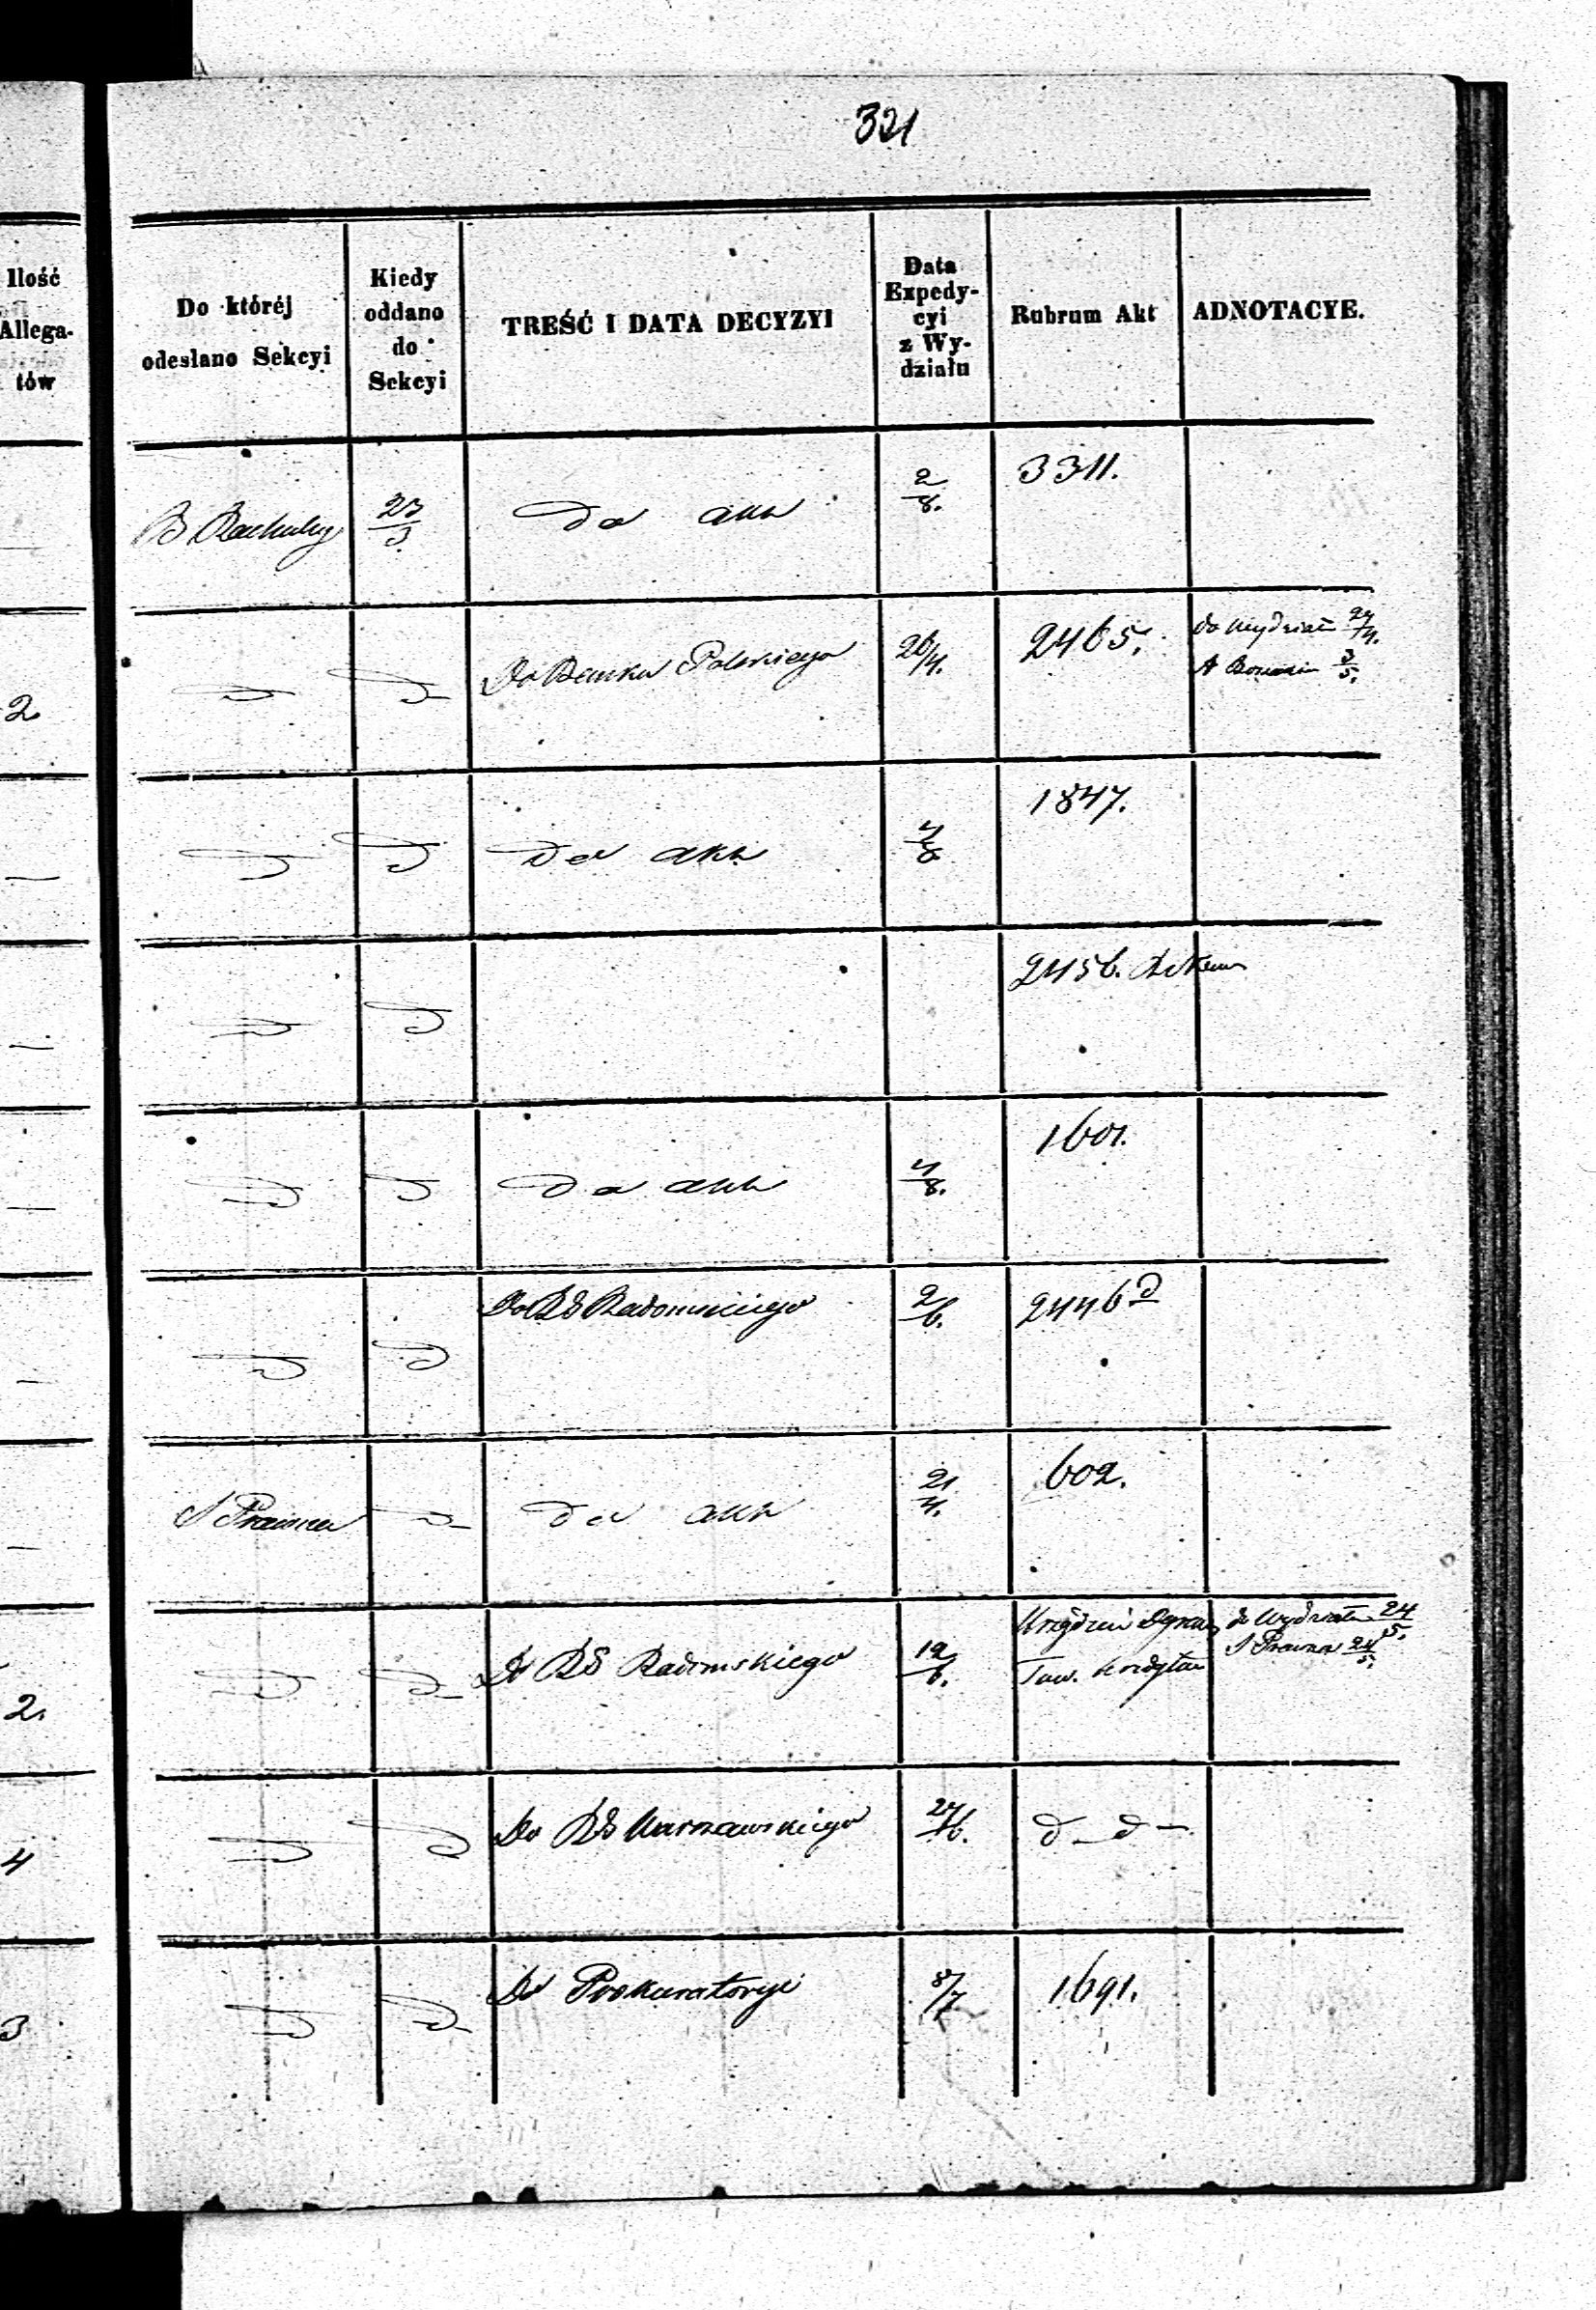 321
Ilość
Allega-
tów
Do któréj
odesłano Sekcyi
Kiedy
oddano
do
Sekcyi
TREŚĆ I DATA DECYZYI
Data
Expedy-
cyi
z Wy-
działu
Rubrum Akt
ADNOTACYE.
B Rachuby
23/3.
do akt
2/8.
3311.
2.
Do Banku Polskiego
26/4.
2465.
do Wydziału 27/4.
3/5.
do akt
4/8
1847.
2456.
do akt
4/8.
1601.
Do RG Radomskiego
2/6.
2446 d
S Prawna
do akt
21/4.
602.
2.
Do RG Radomskiego
12/6.
do Wydziału 24/5.
S Prawna 24/5.
Tow. Kredytow
4
Do RG Warszawskiego
27/6.
d _ d _
3
Do Prokuratoryi
8/7
1691.